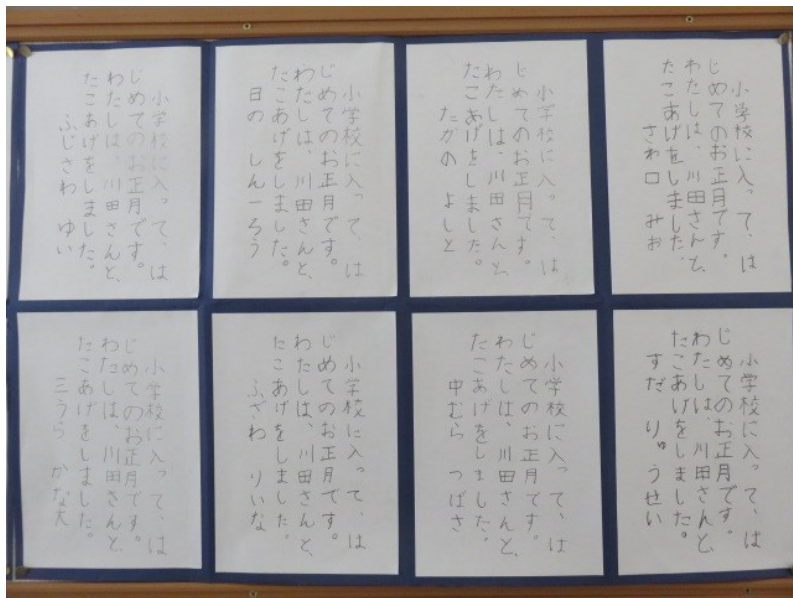 小学校に入って、は
じめてのお正月です。
わたしは、川田さんと、
たこあげをしました。
さわ口 みお
小学校に入って、は
じめてのお正月です。
わたしは、川田さんと、
たこあげをしました。
たかの よしと
小学校に入って、は
じめてのお正月です。
わたしは、川田さんと、
たこあげをしました。
日の しん一ろう
小学校に入って、は
じめてのお正月です。
わたしは、川田さんと、
たこあげをしました。
ふじさわ ゆい
小学校に入って、は
じめてのお正月です。
わたしは、川田さんと、
たこあげをしました。
すだ りゅうせい
小学校に入って、は
じめてのお正月です。
わたしは、川田さんと、
たこあげをしました。
中むら つばさ
小学校に入って、は
じめてのお正月です。
わたしは、川田さんと、
たこあげをしました。
ふざわ りいな
小学校に入って、は
じめてのお正月です。
わたしは、川田さんと、
たこあげをしました。
三うら かな大